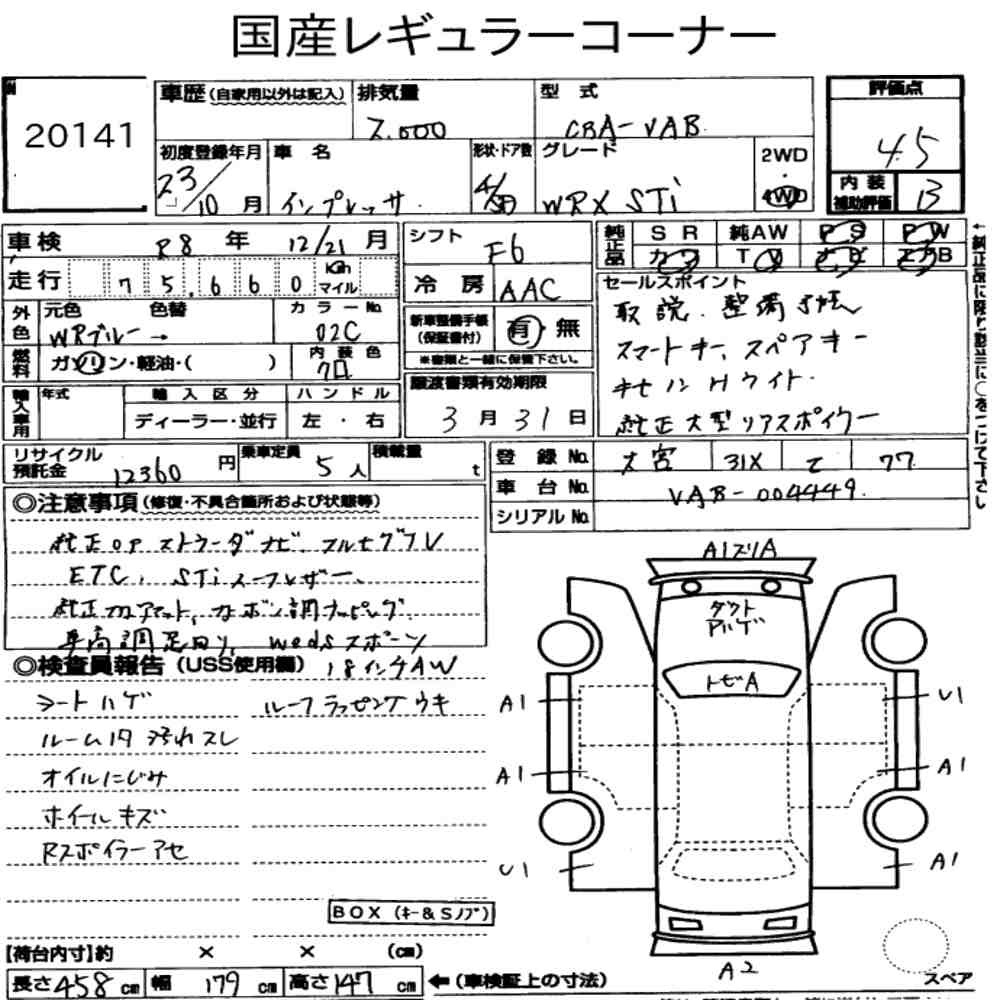 国産レギュラーコーナー
20141
車歴 (自家用以外は記入) 排気量 2.000 型式 CBA-VAB
評価点 4.5
内装補助評価 B
初度登録年月 23/10月 車名 インプレッサ 形状・ドア数 4/ グレード WRX STi 2WD 4WD
車検 R8年 12/21月
走行 7 5,6 6 0 Km マイル
シフト F6
冷房 AAC
純正品 SR 純AW PS PW
カワ TV ナビ エアB
外色 元色 WRブルー → 色替 カラーNo. 02C
燃料 ガソリン・軽油・( ) 内装色 クロ
新車整備手帳 (保証書付) 有・無
※書類と一緒に保管下さい。
輸入車用 年式 輸入区分 ディーラー・並行 ハンドル 左・右
譲渡書類有効期限
3月31日
セールスポイント
取説. 整備手帳
スマートキー. スペアキー
キセノンHライト.
純正大型リアスポイラー
←純正品に限り該当に○をつけて下さい
リサイクル預託金 12360円 乗車定員 5人 積載量 t
登録No. 大宮 31X て 77
車台No. VAB-004449.
シリアルNo.
◎注意事項 (修復・不具合箇所および状態等)
純正OPストラーダナビ. フルセグTV
ETC. STiスーフレザー.
純正フロアマット, カーボン調ラッピング
車高調足回り, wedsスポーツ
18インチAW
◎検査員報告 (USS使用欄)
シートハゲ
ルーフラッピングウキ
ルーム内汚れスレ
オイルにじみ
ホイールキズ
Rスポイラーアセ
A1スリA
ダクト
Aハゲ
トビA
A1
U1
A1
A1
U1
A1
A2
スペア
BOX (キー&Sノブ)
[荷台内寸]約 × × (cm)
長さ458cm 幅179cm 高さ147cm ←(車検証上の寸法)